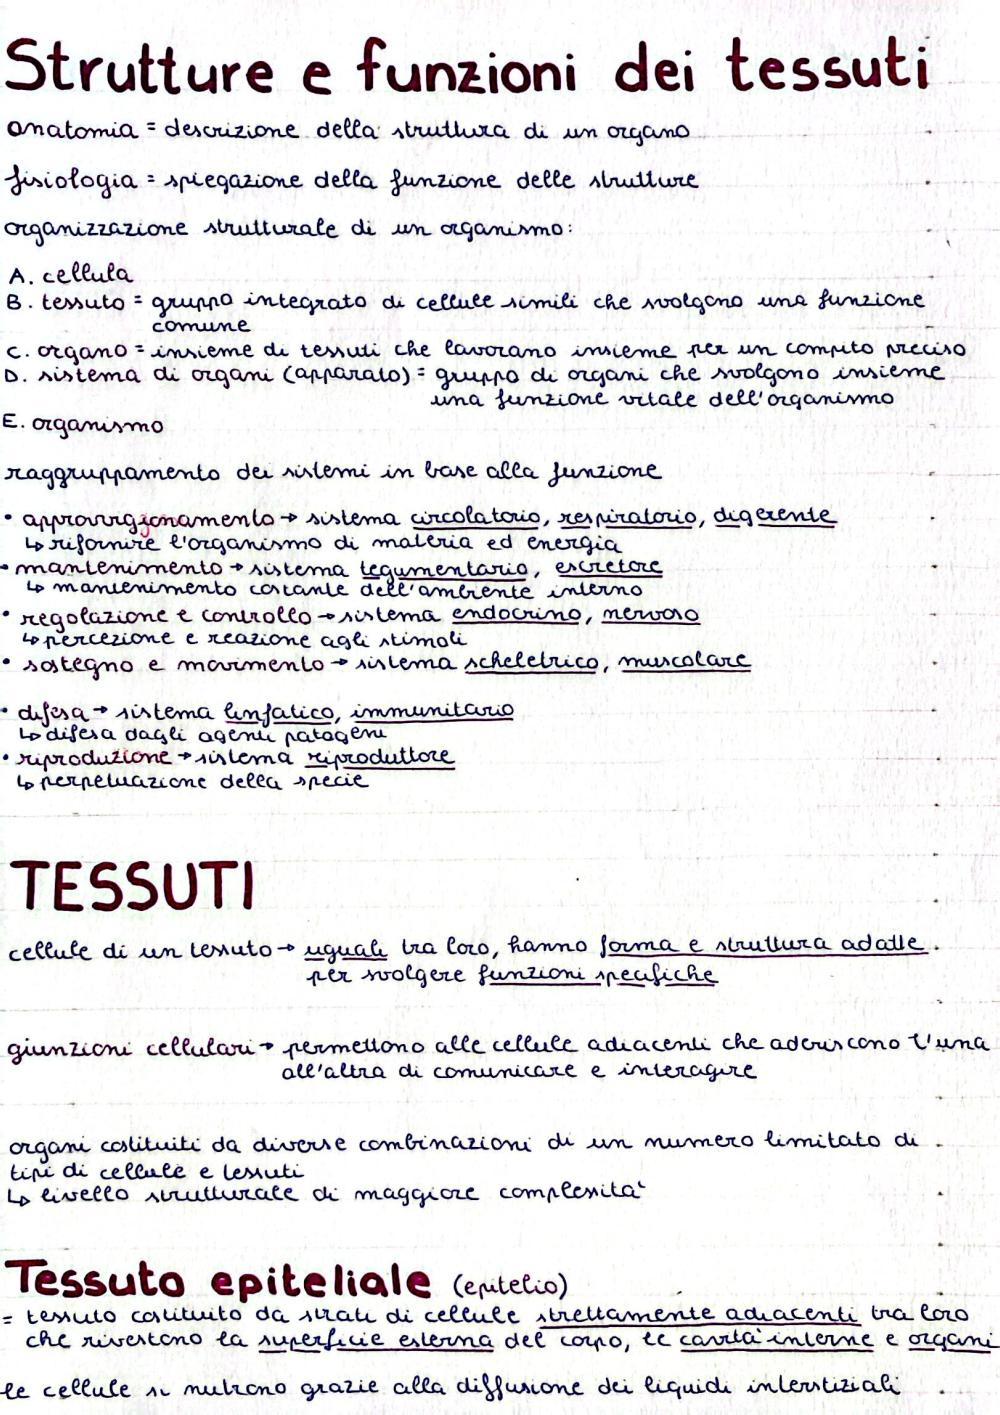 Strutture e funzioni dei tessuti
anatomia = descrizione della struttura di un organo
fisiologia = spiegazione della funzione delle strutture
organizzazione strutturale di un organismo:
A. cellula
B. tessuto = gruppo integrato di cellule simili che svolgono una funzione
comune
C. organo = insieme di tessuti che lavorano insieme per un compito preciso
D. sistema di organi (apparato) = gruppo di organi che svolgono insieme
una funzione vitale dell'organismo
E. organismo
raggruppamento dei sistemi in base alla funzione
• approvvigionamento → sistema circolatorio, respiratorio, digerente
↳ rifornire l'organismo di materia ed energia
• mantenimento → sistema tegumentario, escretore
↳ mantenimento costante dell'ambiente interno
• regolazione e controllo → sistema endocrino, nervoso
↳ percezione e reazione agli stimoli
• sostegno e movimento → sistema scheletrico, muscolare
• difesa → sistema linfatico, immunitario
↳ difesa dagli agenti patogeni
• riproduzione → sistema riproduttore
↳ perpetuazione della specie
TESSUTI
cellule di un tessuto → uguali tra loro, hanno forma e struttura adatte
per svolgere funzioni specifiche
giunzioni cellulari → permettono alle cellule adiacenti che aderiscono l'una
all'altra di comunicare e interagire
organi costituiti da diverse combinazioni di un numero limitato di
tipi di cellule e tessuti
↳ livello strutturale di maggiore complessità
Tessuto epiteliale (epitelio)
= tessuto costituito da strati di cellule strettamente adiacenti tra loro
che rivestono la superficie esterna del corpo, le cavità interne e organi
le cellule si nutrono grazie alla diffusione dei liquidi interstiziali